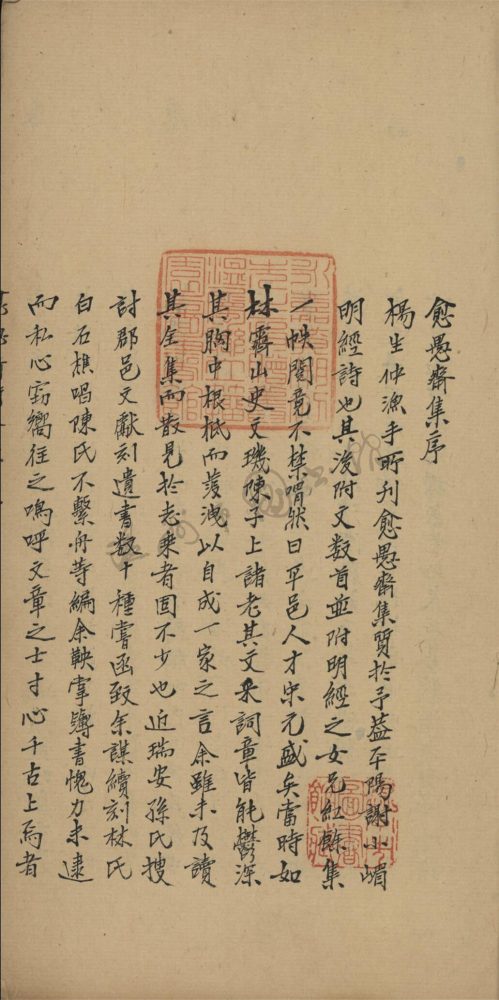 愈愚齋集序
楊生仲漁手所刊愈愚齋集質於予蓋平陽謝小嵋
明經詩也其後附文數首並附明經之女兄紅餘集
一帙閱竟不禁喟然曰平邑人才宋元盛矣當時如
林霽山史文璣陳子上諸老其文采詞章皆能鬱深
其胸中根柢而發洩以自成一家之言余雖未及讀
其全集而散見於志乘者固不少也近瑞安孫氏搜
討郡邑文獻刻遺書數十種嘗函致余謀續刻林氏
白石樵唱陳氏不繫舟等編余鞅掌簿書愧力未逮
而私心竊嚮往之嗚呼文章之士寸心千古上焉者